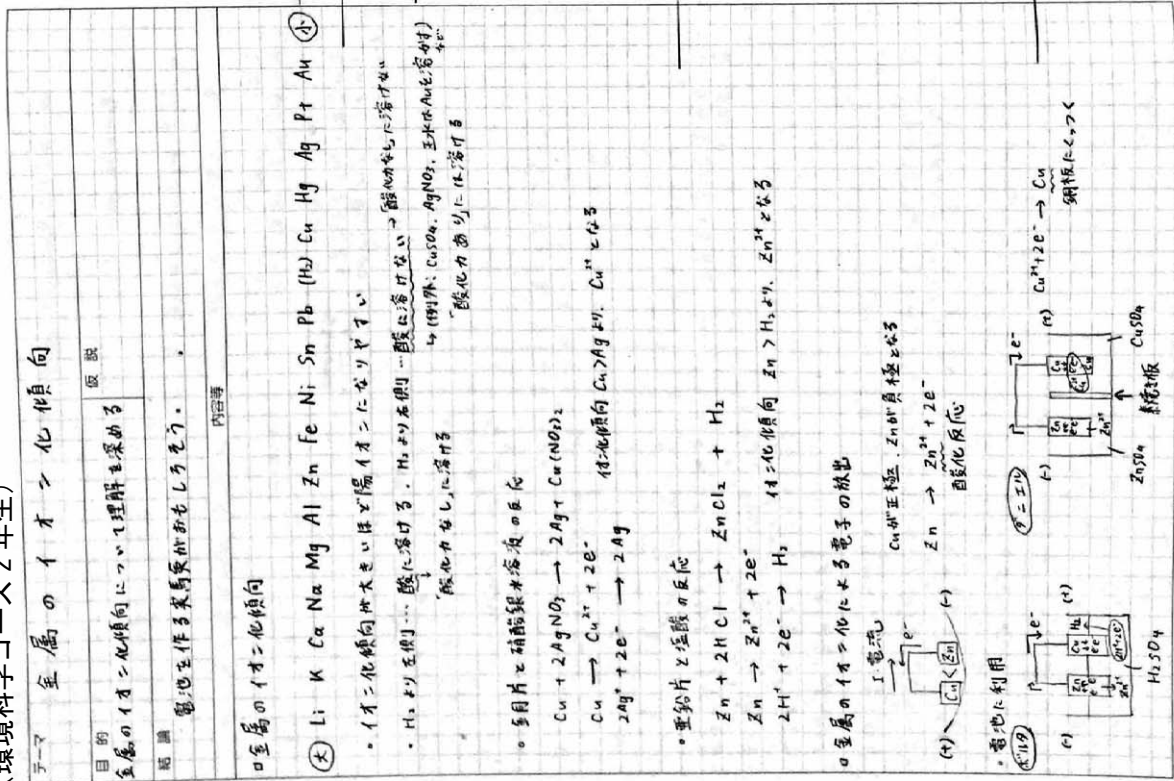 （環境科学コース２年生）
テーマ 金属のイオン化傾向
目的 仮説
金属のイオン化傾向について理解を深める
結論
電池を作る実験がおもしろそう.
内容等
□金属のイオン化傾向
大 Li K Ca Na Mg Al Zn Fe Ni Sn Pb (H₂) Cu Hg Ag Pt Au 小
・イオン化傾向が大きいほど陽イオンになりやすい
・H₂より左側…酸に溶ける. H₂より右側…酸に溶けない→「酸化力なし」に溶けない
「酸化力なし」に溶ける
↳(例外: CuSO₄, AgNO₃, 王水はAuを溶かす)など
「酸化力あり」には溶ける
・銅片と硝酸銀水溶液の反応
Cu + 2AgNO₃ → 2Ag + Cu(NO₃)₂
Cu → Cu²⁺ + 2e⁻
2Ag⁺ + 2e⁻ → 2Ag
イオン化傾向 Cu>Agより, Cu²⁺となる
・亜鉛片と塩酸の反応
Zn + 2HCl → ZnCl₂ + H₂
Zn → Zn²⁺ + 2e⁻
2H⁺ + 2e⁻ → H₂
イオン化傾向 Zn > H₂より, Zn²⁺となる
□金属のイオン化による電子の放出
I 電流
e⁻
(+) Cu < Zn (-)
Cuが正極, Znが負極となる
Zn → Zn²⁺ + 2e⁻
酸化反応
・電池に利用
ボルタ
e⁻
(-) (+)
Zn Cu H₂
Zn²⁺
H₂SO₄
ダニエル
e⁻
(-) (+)
Zn Cu
Zn²⁺
ZnSO₄ 素焼き板 CuSO₄
Cu²⁺+2e⁻ → Cu
銅板にくっつく